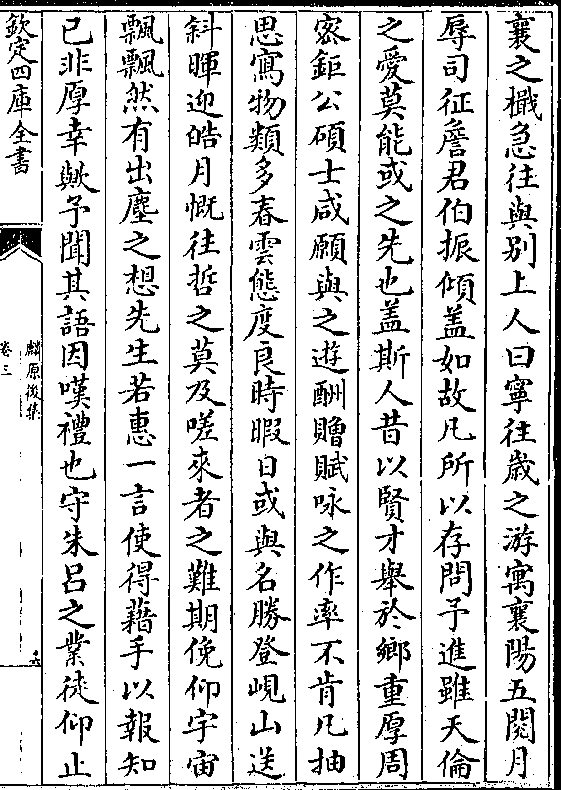 襄之檝急往與别上人曰寧往嵗之游寓襄陽五閱月
辱司征詹君伯振傾盖如故凡所以存問予進雖天倫
之愛莫能或之先也盖斯人昔以賢才舉於鄉重厚周
宻鉅公碩士咸願與之遊酬贈賦咏之作率不肯凡抽
思寫物類多春雲態度良時暇日或與名勝登峴山送
斜暉迎皓月慨往哲之莫及嗟來者之難期俛仰宇宙
飄飄然有出塵之想先生若惠一言使得藉手以報知
已非厚幸歟予聞其語因嘆禮也守朱吕之業徒仰止
欽定四庫全書
麟原後集
卷三
六